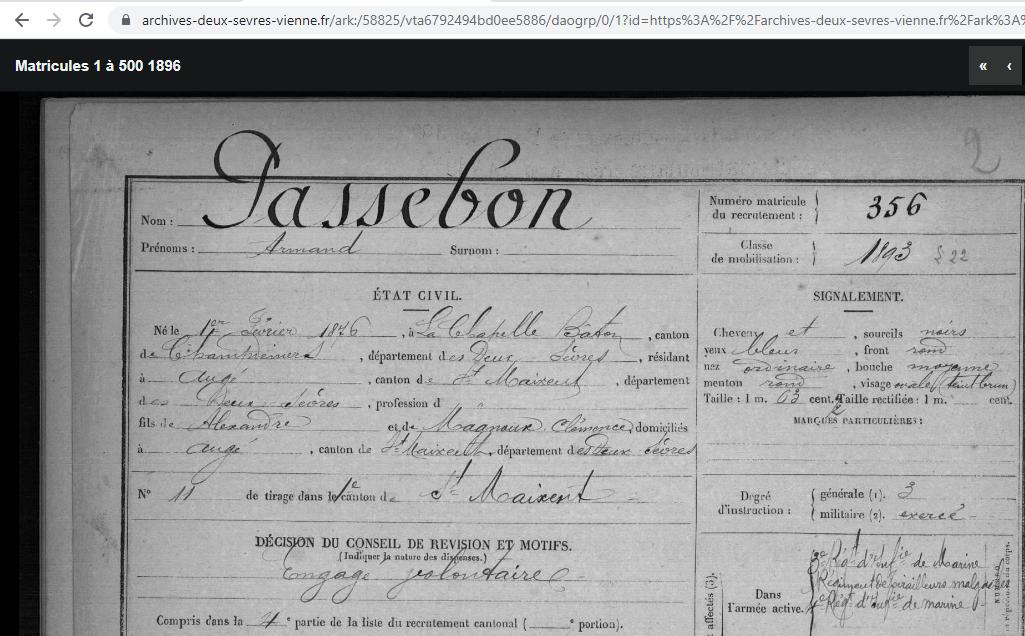 archives-deux-sevres-vienne.fr/ark:/58825/vta6792494bd0ee5886/daogrp/0/1?id=https%3A%2F%2Farchives-deux-sevres-vienne.fr%2Fark%3A%
Matricules 1 à 500 1896
« ‹
2
Passebon
Nom :
Prénoms : Armand Surnom :
Numéro matricule
du recrutement : 356
Classe
de mobilisation : 1893 § 22
ÉTAT CIVIL.
Né le 1er Février 1876, à La Chapelle Bâton, canton
de Champdeniers, département des Deux Sèvres, résidant
à Augé, canton de St Maixent, département
des Deux Sèvres, profession d
fils de Alexandre et de Magnoux, Clémence, domiciliés
à Augé, canton de St Maixent, département des Deux Sèvres
No 11 de tirage dans le 1e canton de St Maixent
DÉCISION DU CONSEIL DE REVISION ET MOTIFS.
(Indiquer la nature des dispenses.)
Engagé volontaire
Compris dans la 4e partie de la liste du recrutement cantonal ( e portion).
SIGNALEMENT.
Cheveux et, sourcils noirs
yeux bleus, front rond
nez ordinaire, bouche moyenne
menton rond, visage ovale (teint brun)
Taille : 1 m. 63 cent. Taille rectifiée : 1 m. cent.
MARQUES PARTICULIÈRES :
Degré
d'instruction :
générale (1). 3
militaire (2). exercé
affectés (3).
Dans
l'armée active.
3e Régt d'Infie de Marine
Régiment de tirailleurs malgaches
4e Régt d'Infie de marine